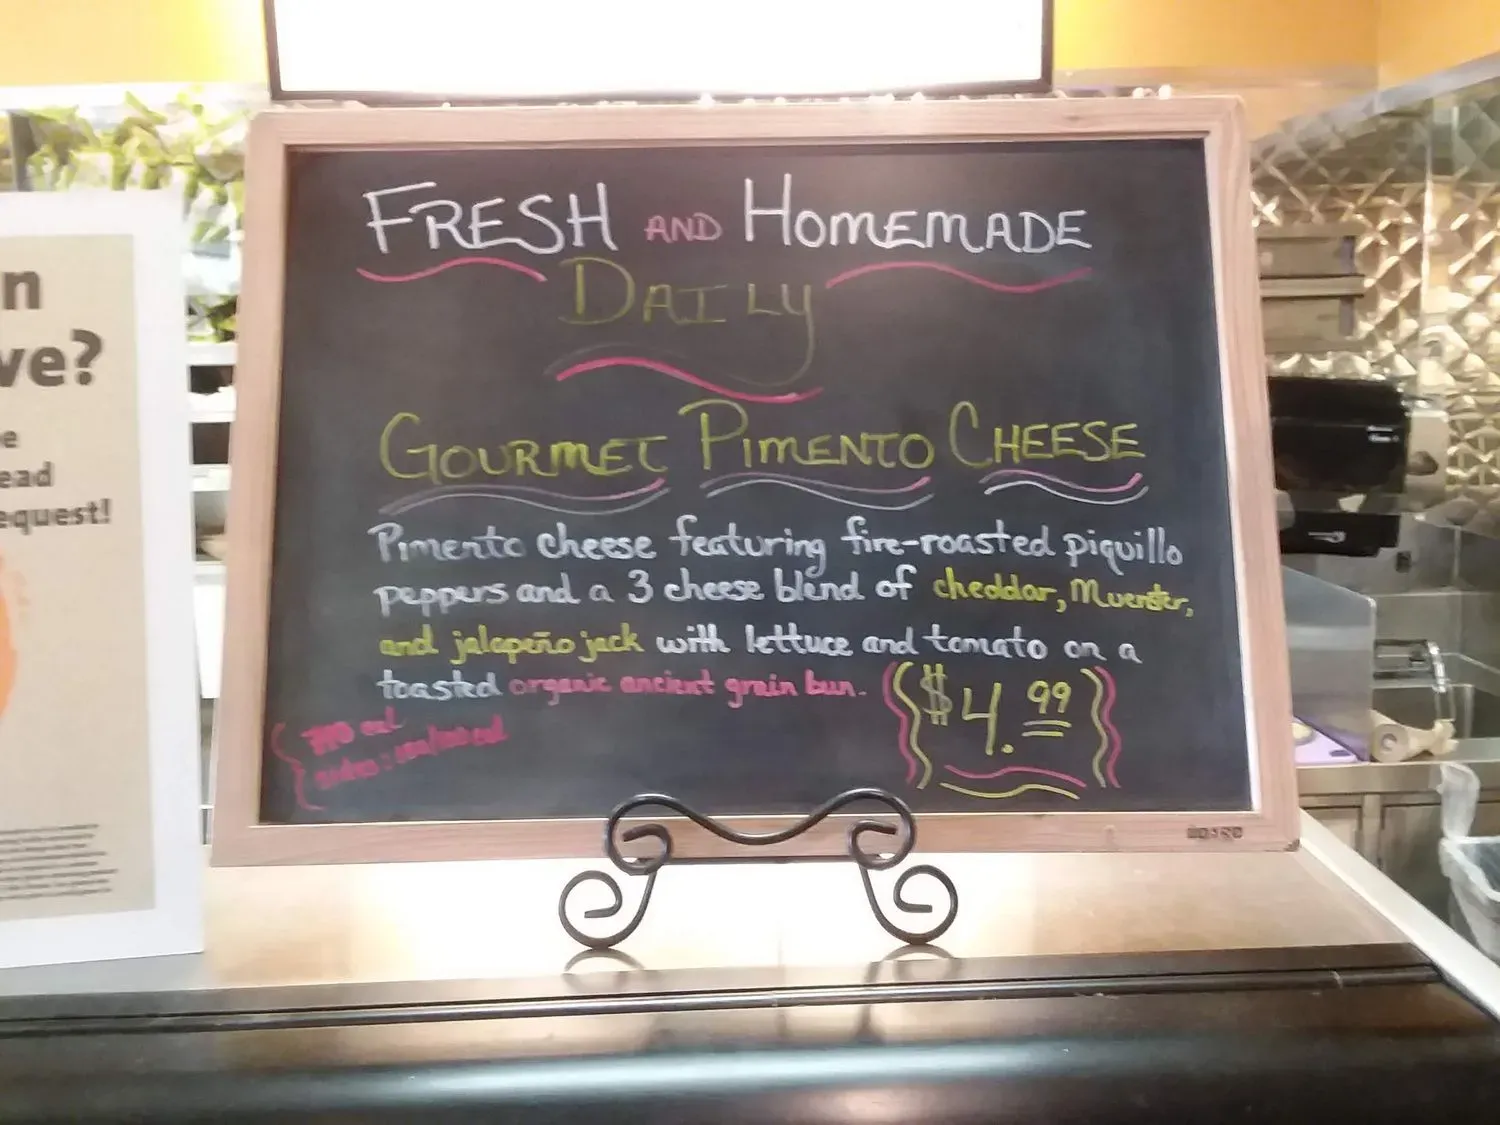 FRESH AND HOMEMADE
DAILY
GOURMET PIMENTO CHEESE
Pimento cheese featuring fire-roasted piquillo
peppers and a 3 cheese blend of cheddar, Muenster,
and jalapeño jack with lettuce and tomato on a
toasted organic ancient grain bun.
$4.99
770 cal
n
ve?
e
ead
equest!